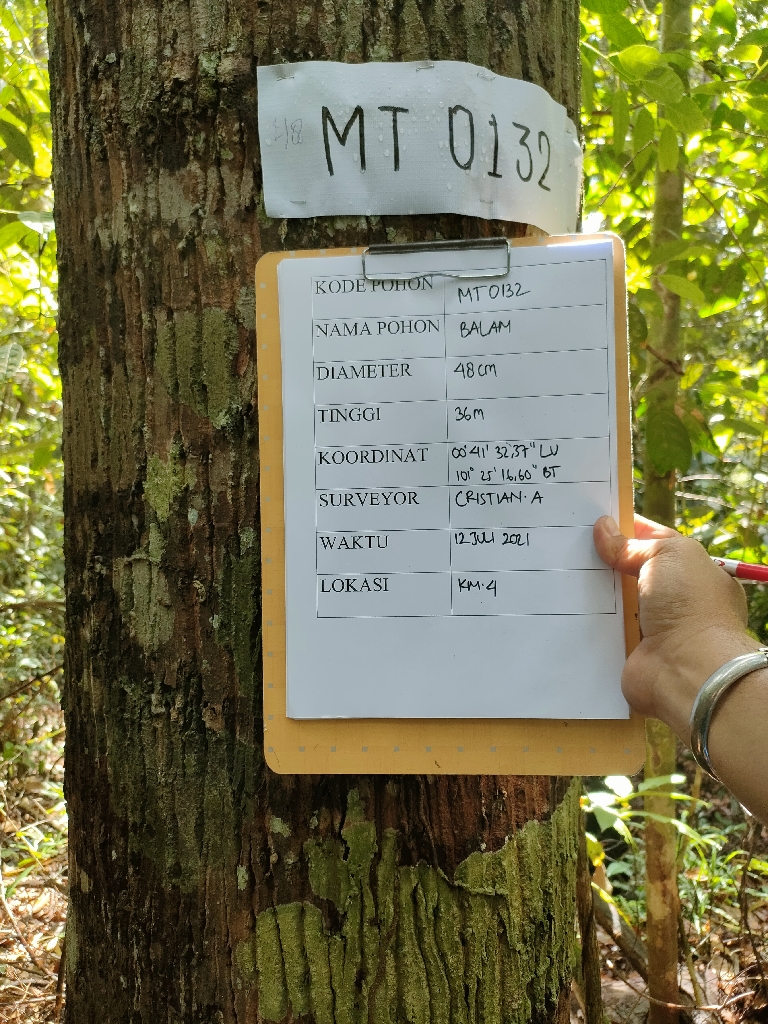 MT 0132
KODE POHON MT 0132
NAMA POHON BALAM
DIAMETER 48 cm
TINGGI 36 m
KOORDINAT 00° 41' 32,37" LU
101° 25' 16,60" BT
SURVEYOR CRISTIAN. A
WAKTU 12 JULI 2021
LOKASI KM. 4